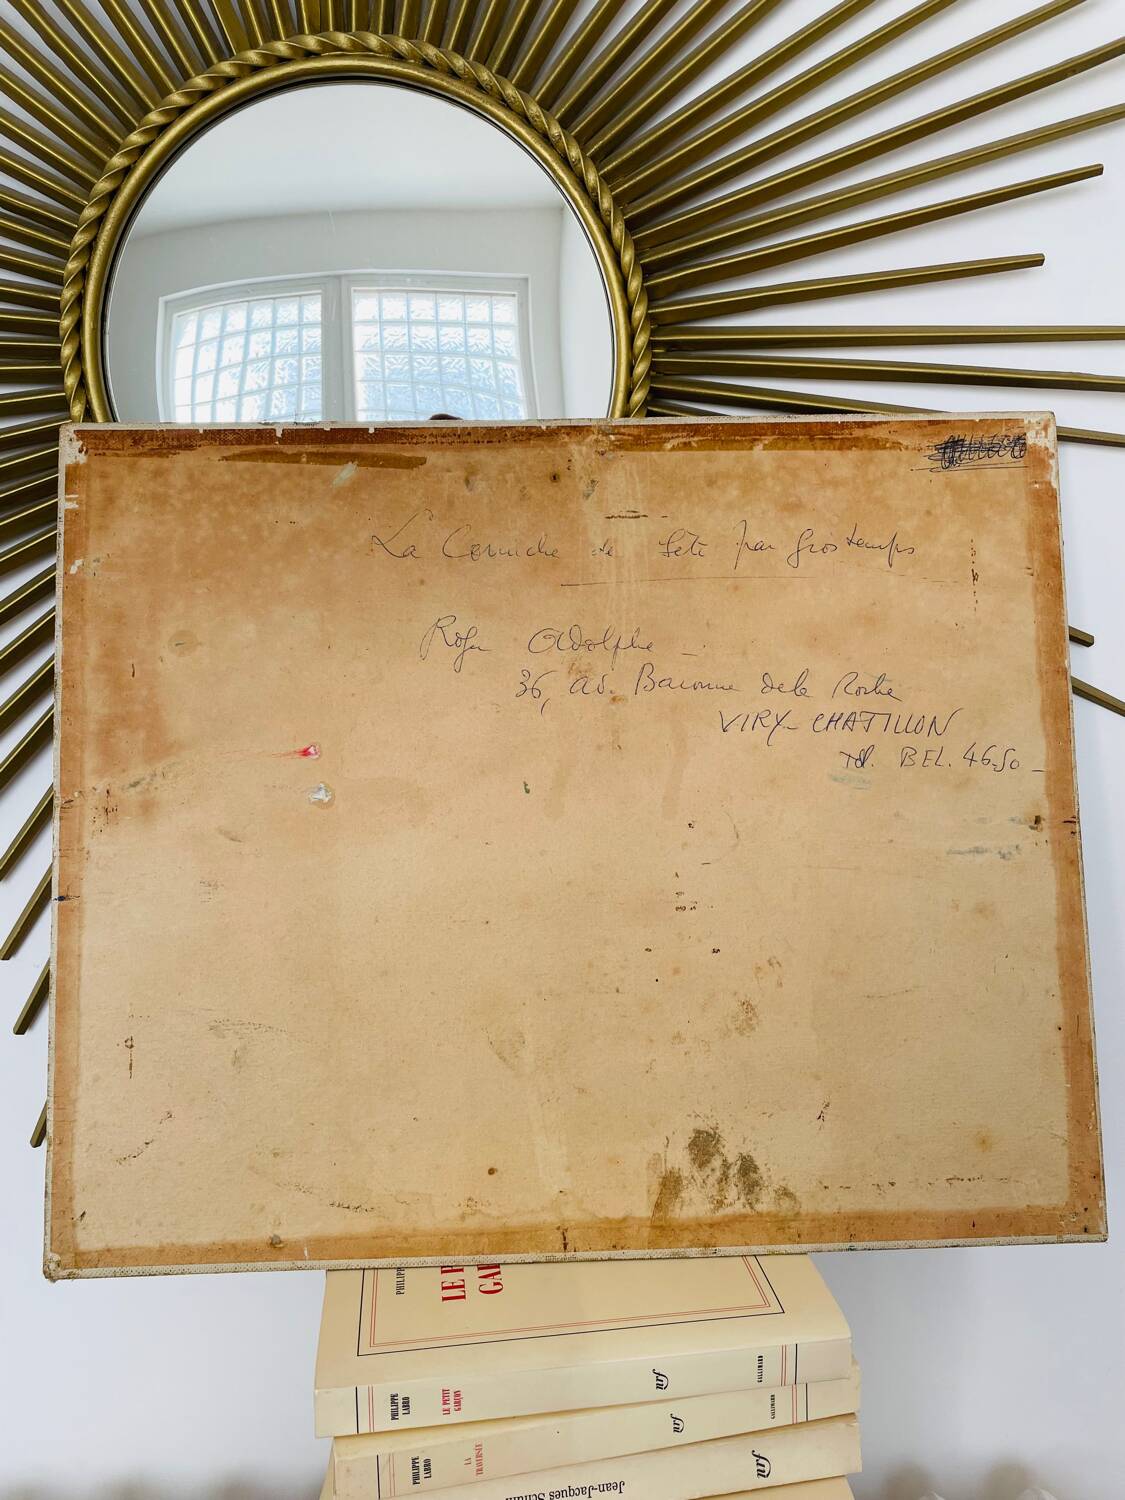 La Corniche de Sète par gros temps
Roger Adolphe -
36, av. Baronne de la Roche
VIRY-CHATILLON
Tél. BEL. 46-50 -
PHILIPPE
LE P
GAR
PHILIPPE LABRO
LE PETIT GARÇON
nrf
GALLIMARD
PHILIPPE LABRO
LA TRAVERSÉE
nrf
GALLIMARD
Jean-Jacques
nrf